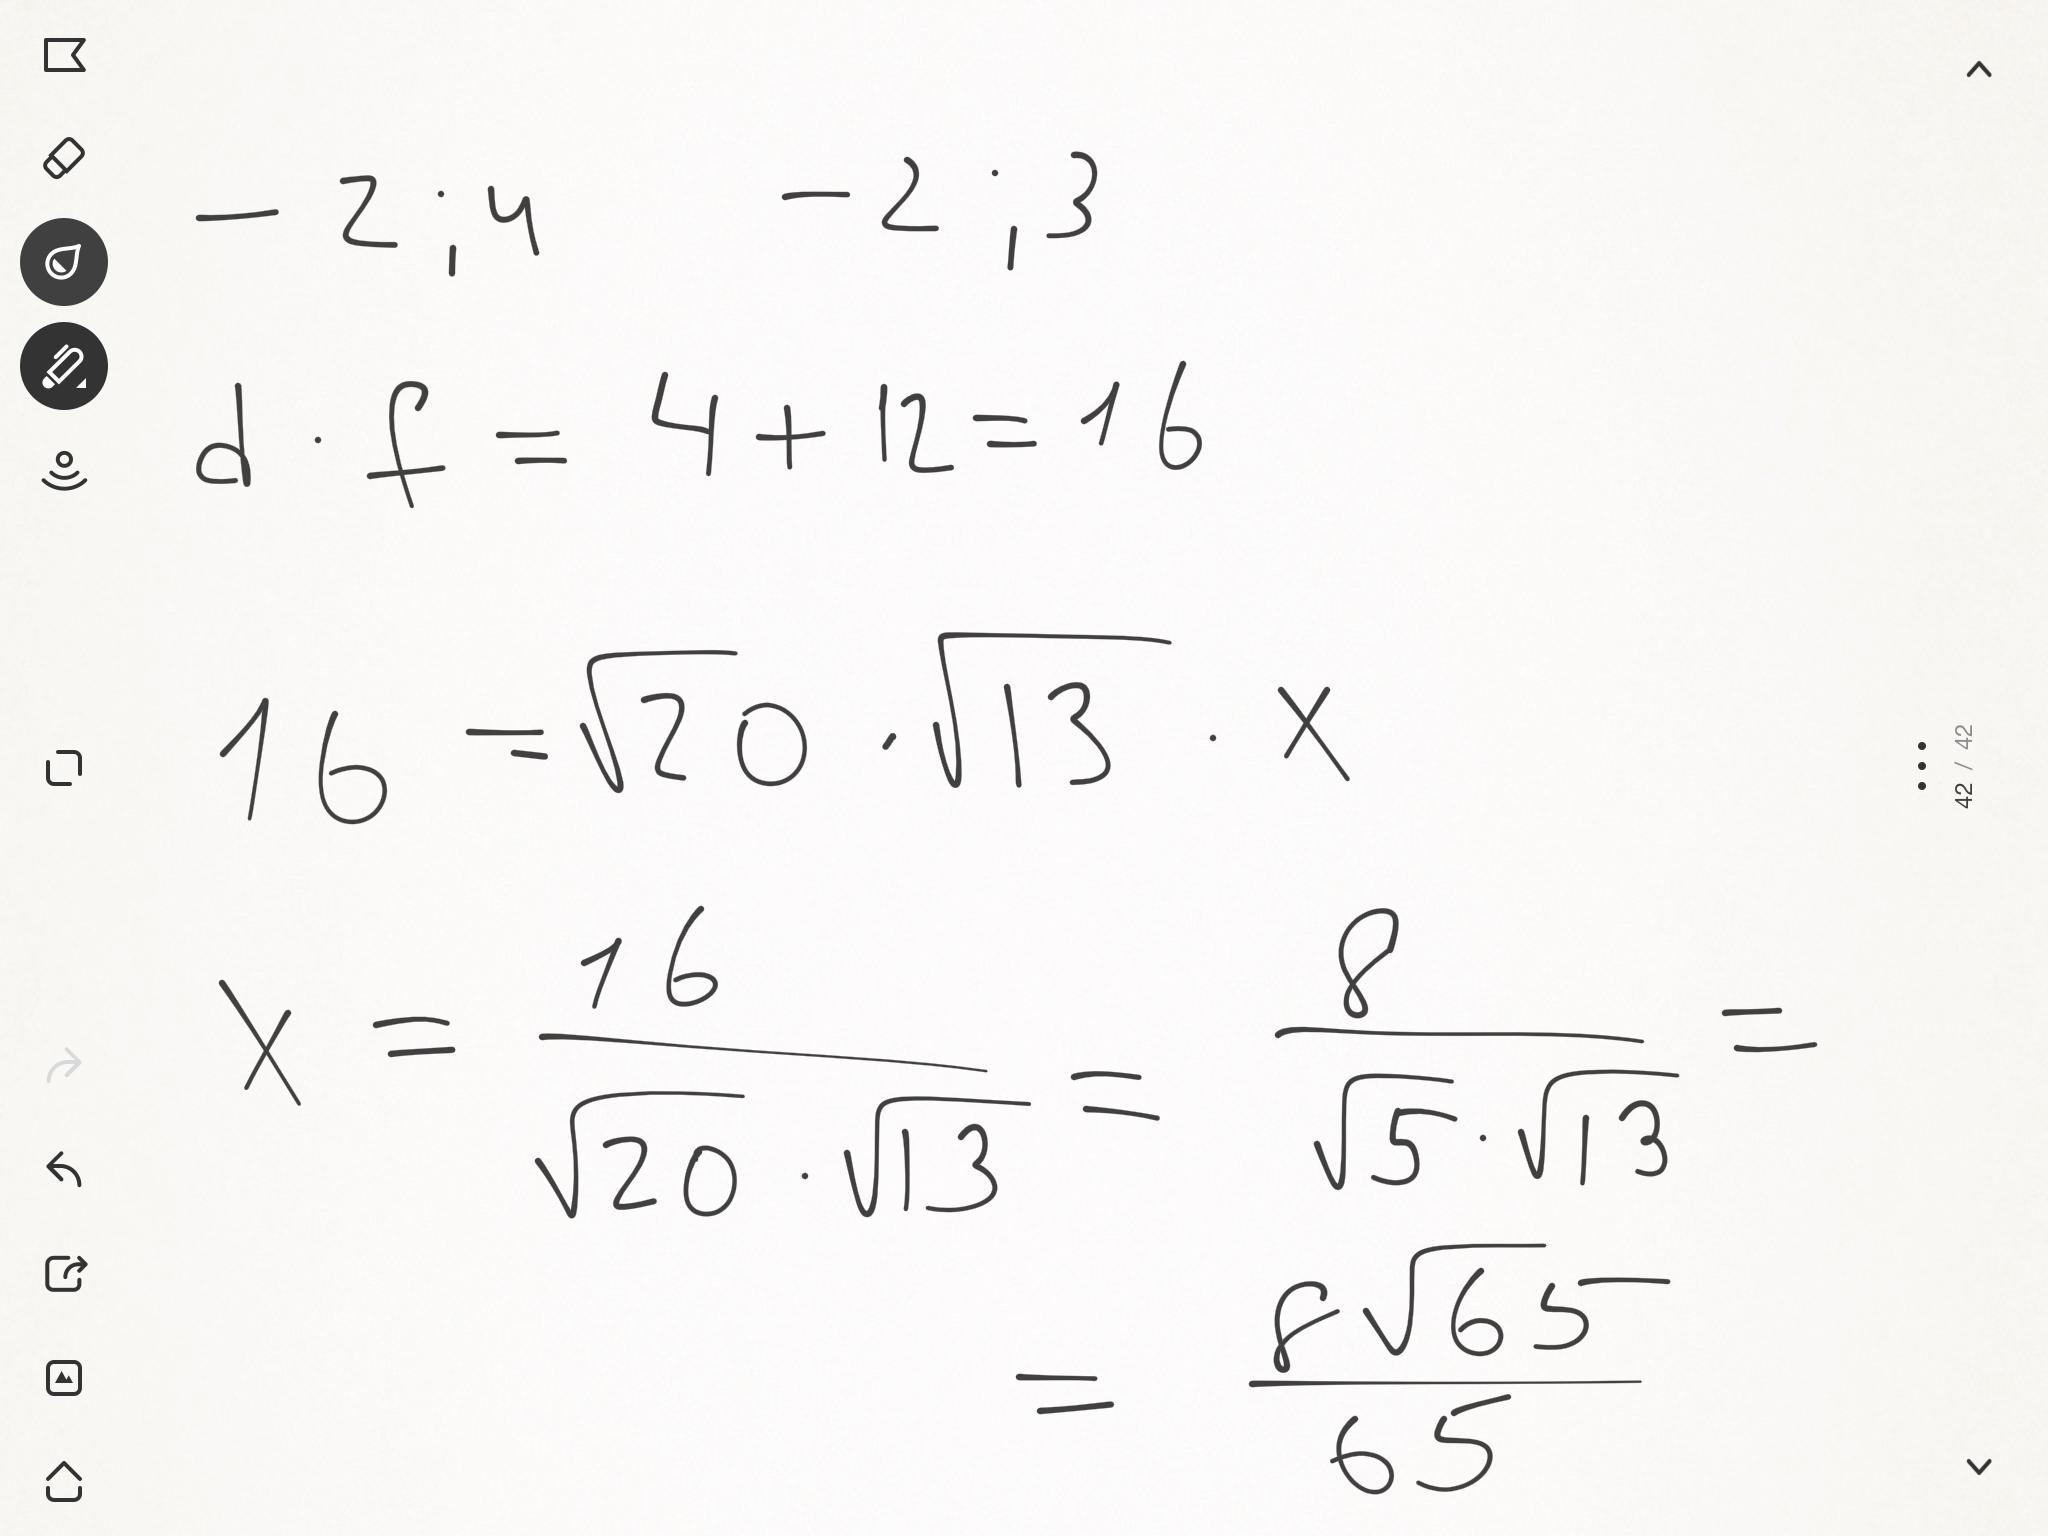 - 2 ; 4 - 2 ; 3
d · f = 4 + 12 = 16
16 = √20 · √13 · x
x = 16 / (√20 · √13) = 8 / (√5 · √13) =
= 8√65 / 65
42 / 42